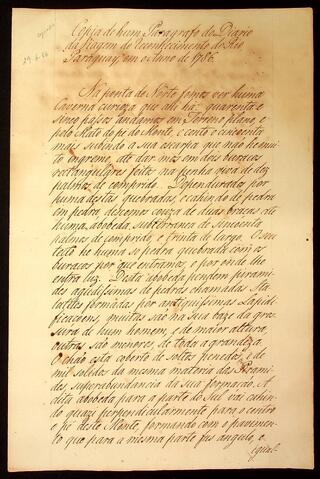 Copia de hum Paragrafo do Diario
da viagem de reconhecimento do Rio
Paraguay, em o Anno de 1786.
29-6-86
Na ponta do Norte fomos ver huma
Caverna curioza que ali há: quarenta e
sinco passos andamos em Terreno plano, e
pelo Mato do pé do Monte, e cento e cincoenta
mais subindo a sua escarpa que não he mui
to ingreme, até dar mos em dois buracos
rectangulares feitos na penha viva de dez
palmos de comprido. Dependurados por
huma destas quebradas, e cahindo de pedra
em pedra descemos couza de duas bracas de
huma abobeda subterranea de sincoenta
palmos de comprido, e trinta de largo. O seu
tecto he huma so pedra quebrada com os
buracos por que entramos e por onde lhe
entra luz. Desta abobeda pendem pirami
des agudissimas de pedras chamadas Sta
latites formadas por antiquissimas Lapidi
ficacoens, muitas saõ na sua baze da gros
sura de hum homem, e de maior altura,
outras saõ menores, de toda a grandeza.
O chaõ esta coberto de soltos penedos, e de
mil solidos da mesma materia das Pirami
des, superabundancia da sua formaçaõ. A
dita abobeda para a parte do Sul vai cahin
do quazi perpendicularmente para o centro
e pé deste Monte, formando com o pavimen
to que para a mesma parte faz angulo, e
igual-